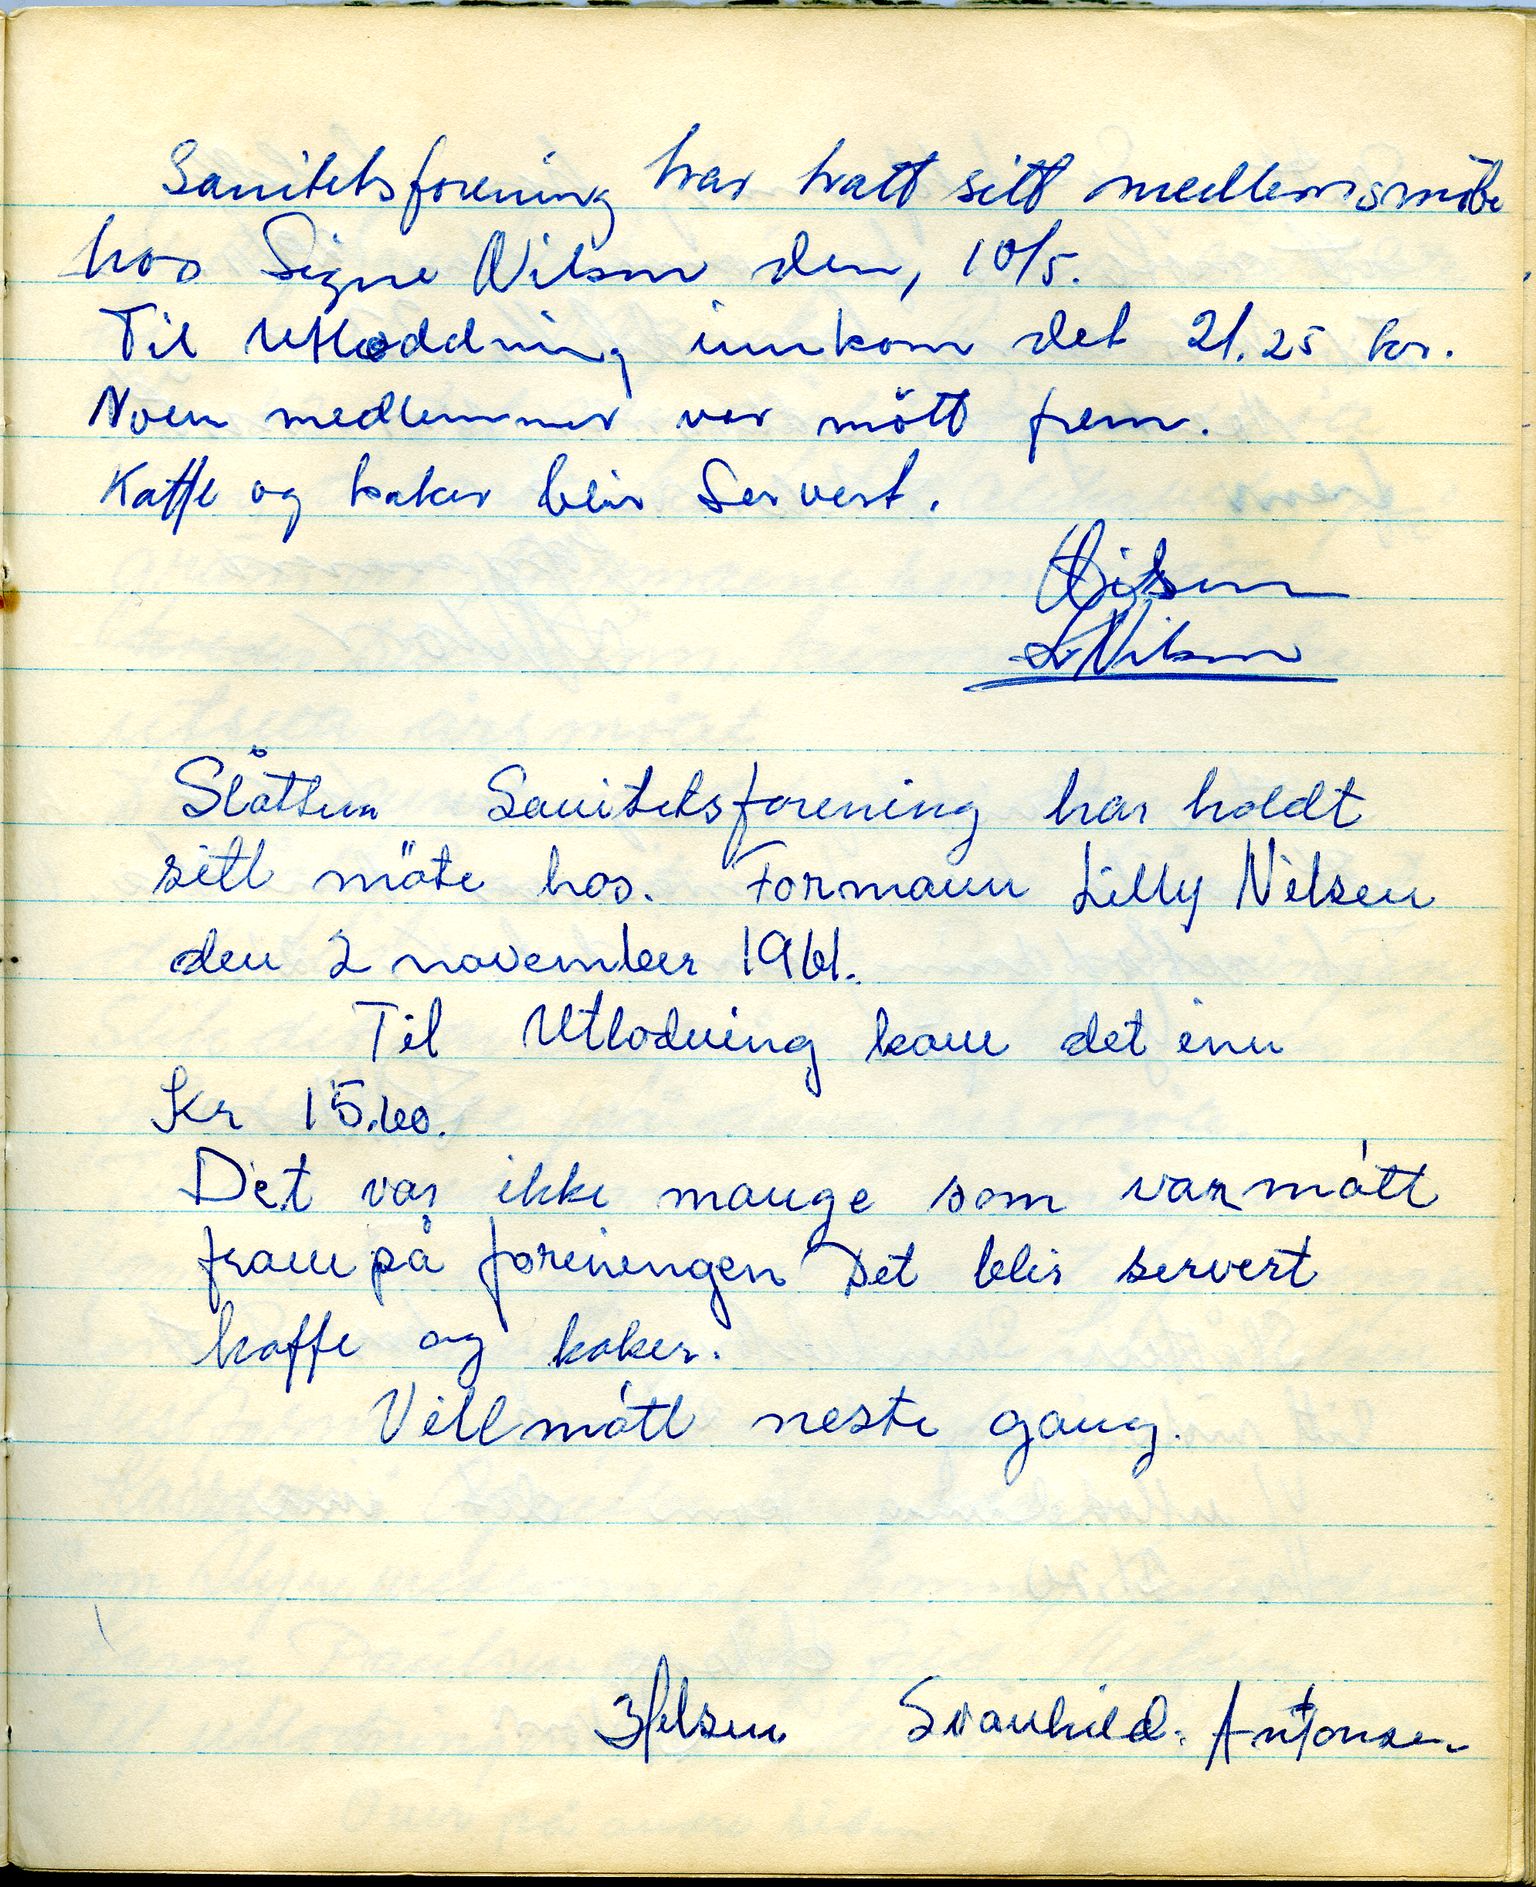 Sanitetsforening har hatt sitt medlemsmöte
hos Signe Nilsen den, 10/5.
Til Utloddning innkom det 21.25 kr.
Noen medlemmer var mött frem.
Kaffe og kaker blir Servert.
Nilsen
L Nilsen
Slåttum Sanitetsforening har holdt
sitt möte hos. Formann Lilly Nilsen
den 2 november 1961.
Til Utlodning kom det inn
Kr 15.60.
Det var ikke mange som var mött
fram på foreningen Det blir servert
kaffe og kaker.
Vell mött neste gang.
Svanhild. Antonsen